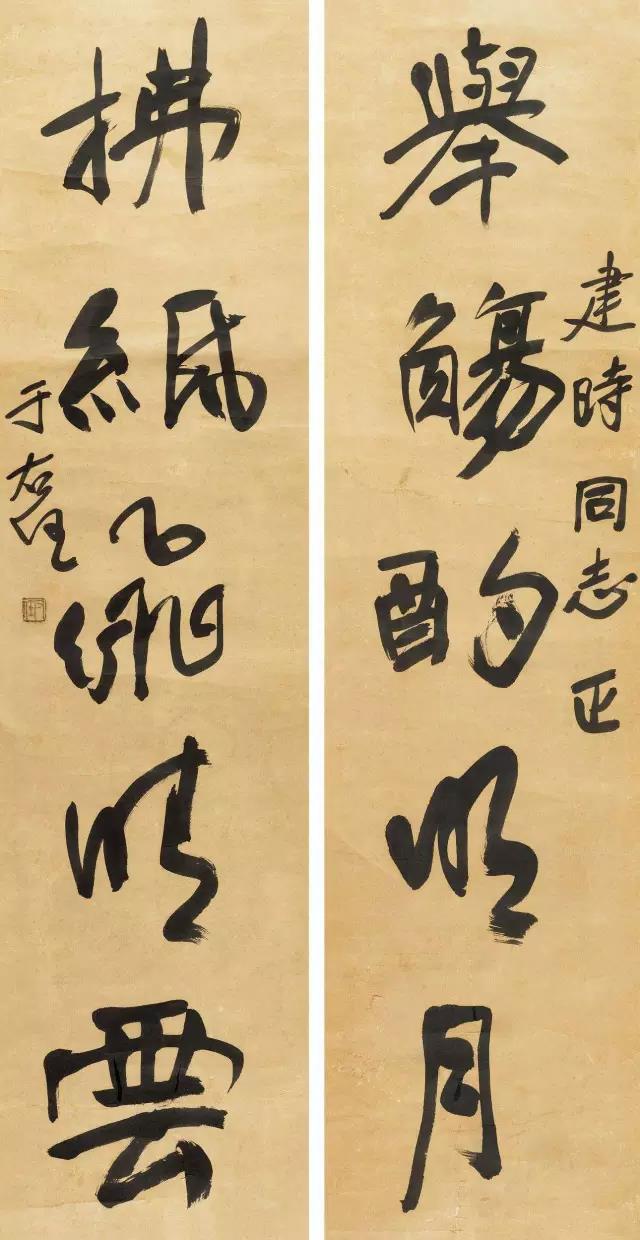 建時同志正
舉觴酌明月
拂紙飛晴雲
于右任